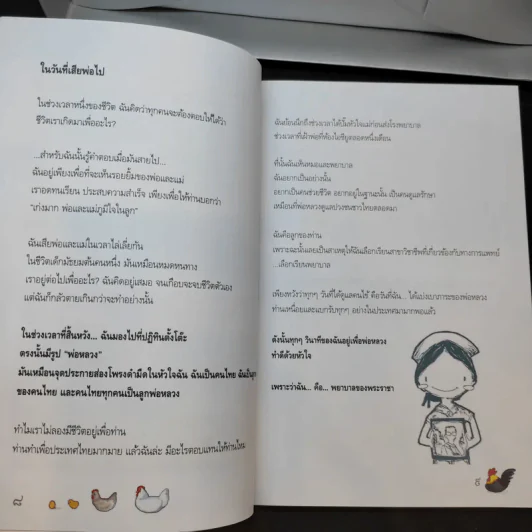 ในวันที่เสียพ่อไป
ในช่วงเวลาหนึ่งของชีวิต ฉันคิดว่าทุกคนจะต้องตอบให้ได้ว่า
ชีวิตเราเกิดมาเพื่ออะไร?
...สำหรับฉันนั้นรู้คำตอบเมื่อมันสายไป...
ฉันอยู่เพียงเพื่อที่จะเห็นรอยยิ้มของพ่อและแม่
เราอดทนเรียน ประสบความสำเร็จ เพียงเพื่อให้ท่านบอกว่า
"เก่งมาก พ่อและแม่ภูมิใจในลูก"
ฉันเสียพ่อและแม่ในเวลาไล่เลี่ยกัน
ในชีวิตเด็กมัธยมต้นคนหนึ่ง มันเหมือนหมดหนทาง
เราอยู่ต่อไปเพื่ออะไร? ฉันคิดอยู่เสมอ จนเกือบจะจบชีวิตตัวเอง
แต่ฉันก็กลัวตายเกินกว่าจะทำอย่างนั้น
ในช่วงเวลาที่สิ้นหวัง... ฉันมองไปที่ปฏิทินตั้งโต๊ะ
ตรงนั้นมีรูป "พ่อหลวง"
มันเหมือนจุดประกายส่องโพรงดำมืดในหัวใจฉัน ฉันเป็นคนไทย ฉันเป็นลูก
ของคนไทย และคนไทยทุกคนเป็นลูกพ่อหลวง
ทำไมเราไม่ลองมีชีวิตอยู่เพื่อท่าน
ท่านทำเพื่อประเทศไทยมากมาย แล้วฉันล่ะ มีอะไรตอบแทนให้ท่านไหม
๘
ฉันย้อนนึกถึงช่วงเวลาได้ปั๊มหัวใจแม่ก่อนส่งโรงพยาบาล
ช่วงเวลาที่เฝ้าพ่อที่ห้องไอซียูตลอดหนึ่งเดือน
ที่นั่นฉันเห็นหมอและพยาบาล
ฉันอยากเป็นอย่างนั้น
อยากเป็นคนช่วยชีวิต อยากอยู่ในฐานะนั้น เป็นคนดูแลรักษา
เหมือนที่พ่อหลวงดูแลปวงชนชาวไทยตลอดมา
ฉันคือลูกของท่าน
เพราะฉะนั้นเลยเป็นสาเหตุให้ฉันเลือกเรียนสาขาวิชาชีพที่เกี่ยวข้องกับทางการแพทย์
...เลือกเรียนพยาบาล
เพียงหวังว่าทุกๆ วันที่ได้ดูแลคนไข้ คือวันที่ฉัน... ได้แบ่งเบาภาระของพ่อหลวง
ท่านเหนื่อยและแบกรับทุกๆ อย่างในประเทศมามากพอแล้ว
ดังนั้นทุกๆ วินาทีของฉันอยู่เพื่อพ่อหลวง
ทำดีด้วยหัวใจ
เพราะว่าฉัน... คือ... พยาบาลของพระราชา
๙